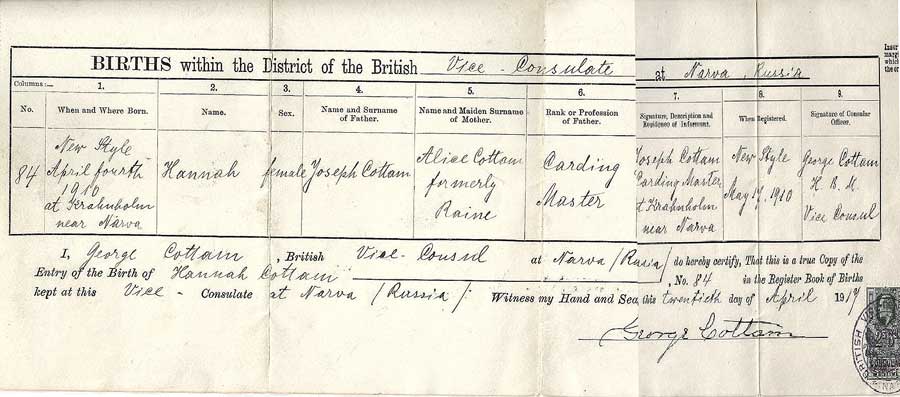 Inser
margi
which
the or
BIRTHS within the District of the British Vice - Consulate at Narva, Russia
Columns:— 1. 2. 3. 4. 5. 6. 7. 8. 9.
No. When and Where Born. Name. Sex. Name and Surname of Father. Name and Maiden Surname of Mother. Rank or Profession of Father. Signature, Description and Residence of Informant. When Registered. Signature of Consular Officer.
84
New Style
April fourth
1910
at Krahnholm
near Narva
Hannah
female
Joseph Cottam
Alice Cottam
formerly
Raine
Carding
Master
Joseph Cottam
Carding Master
at Krahnholm
near Narva
New Style
May 17, 1910
George Cottam
H. B. M.
Vice Consul
I, George Cottam, British Vice-Consul at Narva (Rusia) do hereby certify, That this is a true Copy of the
Entry of the Birth of Hannah Cottam, No. 84 in the Register Book of Births
kept at this Vice - Consulate at Narva (Russia). Witness my Hand and Seal, this twentieth day of April 191
George Cottam